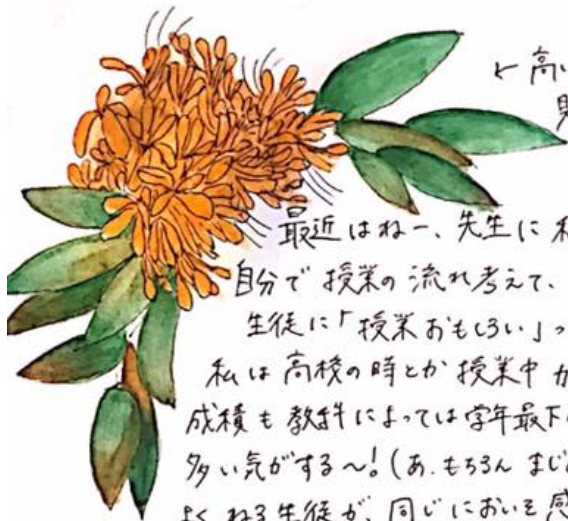 ← 高い
最近はねー、先生に
自分で授業の流れ考えて、
生徒に「授業おもしろい」っ
私は高校の時とか授業中
成績も教科によっては学年最下
多い気がする〜!(あ、もちろん まじ
よく ねる生徒が、同じにおいを感